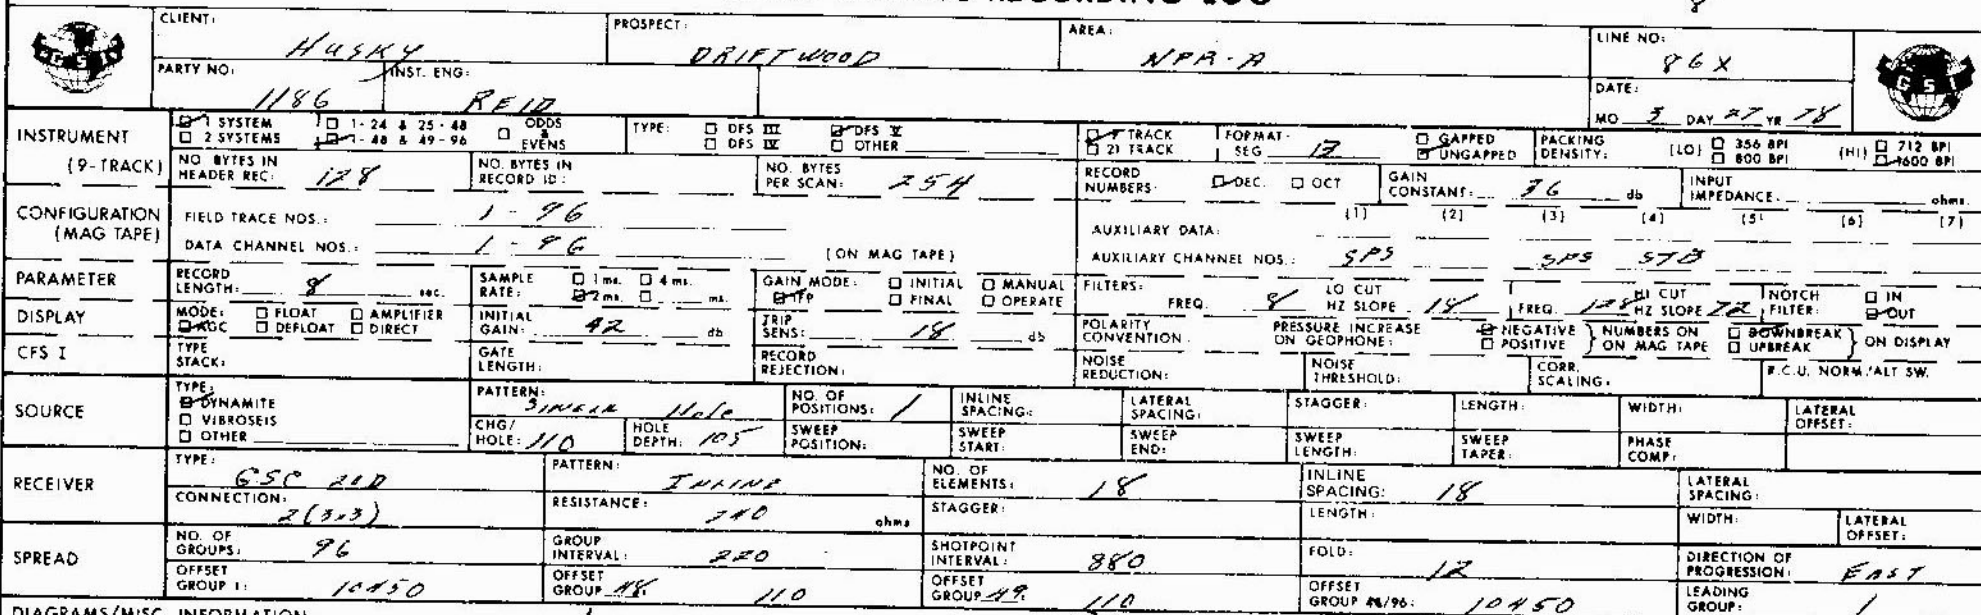 RECORDING LOG
CLIENT: HUSKY PROSPECT: DRIFTWOOD AREA: NPR-A LINE NO: 86X
PARTY NO: 1186 INST. ENG: REID DATE: MO 3 DAY 27 YR 78
GSI GSI
INSTRUMENT (9-TRACK)
☑ 1 SYSTEM ☐ 2 SYSTEMS ☐ 1-24 & 25-48 ☑ 1-48 & 49-96 ☐ ODDS & EVENS
TYPE: ☐ DFS III ☐ DFS IV ☑ DFS V ☐ OTHER
☑ 9 TRACK ☐ 21 TRACK FORMAT- SEG ☐ GAPPED ☑ UNGAPPED PACKING DENSITY: (LO) ☐ 356 BPI ☐ 800 BPI (HI) ☐ 712 BPI ☑ 1600 BPI
NO BYTES IN HEADER REC: 128 NO. BYTES IN RECORD ID: NO. BYTES PER SCAN: 254
RECORD NUMBERS: ☑ DEC. ☐ OCT GAIN CONSTANT: 36 db INPUT IMPEDANCE. ohms.
CONFIGURATION (MAG TAPE)
FIELD TRACE NOS.: 1-96 AUXILIARY DATA: (1) (2) (3) (4) (5) (6) (7)
DATA CHANNEL NOS.: 1-96 (ON MAG TAPE) AUXILIARY CHANNEL NOS.: SPS SPS STB
PARAMETER
RECORD LENGTH: 8 sec. SAMPLE RATE: ☐ 1 ms. ☐ 4 ms. ☑ 2 ms. ☐ ms. GAIN MODE: ☐ INITIAL ☐ MANUAL ☑ IFP ☐ FINAL ☐ OPERATE
FILTERS: FREQ. 8 LO CUT HZ SLOPE 18 FREQ. 128 HI CUT HZ SLOPE 72 NOTCH FILTER: ☐ IN ☑ OUT
DISPLAY
MODE: ☐ FLOAT ☐ AMPLIFIER ☑ AGC ☐ DEFLOAT ☐ DIRECT INITIAL GAIN: 42 db TRIP SENS: 18 db
POLARITY CONVENTION. PRESSURE INCREASE ON GEOPHONE: ☑ NEGATIVE ☐ POSITIVE NUMBERS ON ON MAG TAPE ☐ DOWNBREAK ☐ UPBREAK ON DISPLAY
CFS I
TYPE STACK: GATE LENGTH: RECORD REJECTION: NOISE REDUCTION: NOISE THRESHOLD: CORR. SCALING: R.C.U. NORM/ALT SW.
SOURCE
TYPE: ☑ DYNAMITE ☐ VIBROSEIS ☐ OTHER
PATTERN: SINGLE Hole NO. OF POSITIONS: 1 INLINE SPACING: LATERAL SPACING: STAGGER: LENGTH: WIDTH: LATERAL OFFSET:
CHG/ HOLE: 110 HOLE DEPTH: 105 SWEEP POSITION: SWEEP START: SWEEP END: SWEEP LENGTH: SWEEP TAPER: PHASE COMP:
RECEIVER
TYPE: GSC 20D PATTERN: INLINE NO. OF ELEMENTS: 18 INLINE SPACING: 18 LATERAL SPACING:
CONNECTION: 2(3x3) RESISTANCE: 240 ohms STAGGER: LENGTH: WIDTH: LATERAL OFFSET:
SPREAD
NO. OF GROUPS: 96 GROUP INTERVAL: 220 SHOTPOINT INTERVAL: 880 FOLD: 12 DIRECTION OF PROGRESSION: EAST
OFFSET GROUP 1: 10450 OFFSET GROUP 48: 110 OFFSET GROUP 49: 110 OFFSET GROUP 48/96: 10450 LEADING GROUP: 1
DIAGRAMS/MISC. INFORMATION